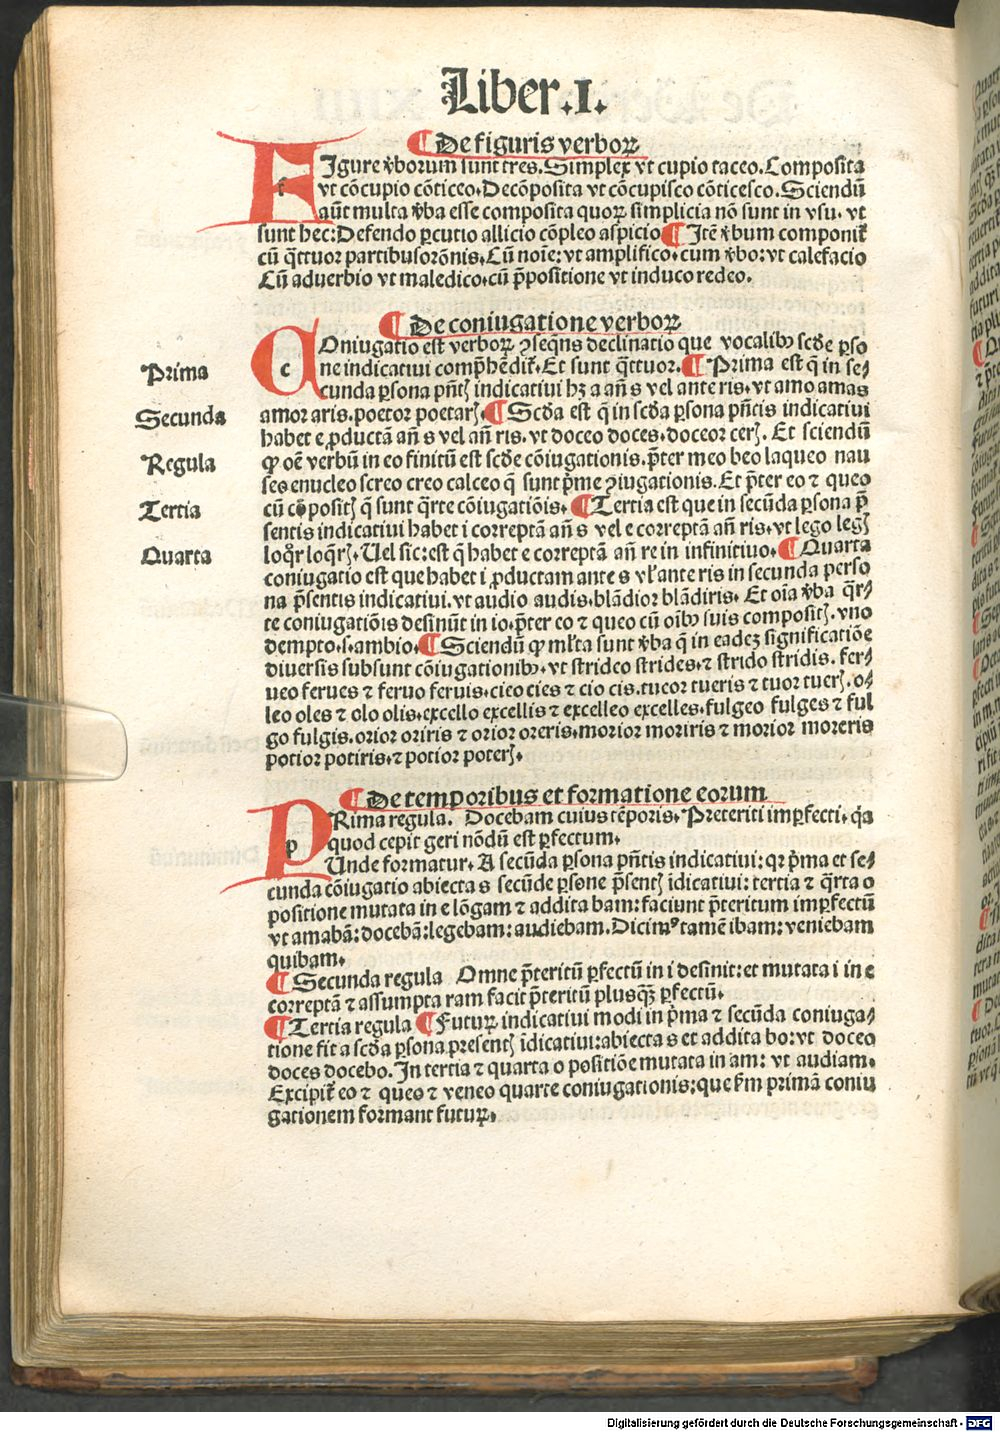 Liber .I.
¶ De figuris verboꝝ
FIgure ꝟborum sunt tres. Simplex vt cupio taceo. Composita
vt cōcupio cōticeo. Decōposita vt cōcupisco cōticesco. Sciendū
aūt multa ꝟba esse composita quoꝝ simplicia nō sunt in vsu. vt
sunt hec: Defendo ꝑcutio allicio cōpleo aspicio ¶ Itē ꝟbum componit᷑
cū q̄ttuor partibus orōnis. Cū noīe: vt amplifico. cum ꝟbo: vt calefacio
Cū aduerbio vt maledico. cū p̄positione vt induco redeo.
¶ De coniugatione verboꝝ
COniugatio est verboꝝ ꝯseq̄ns declinatio que vocalibꝰ scd̄e ꝑso
ne indicatiui comp̄hēdit᷑. Et sunt q̄ttuor. ¶ Prima est q̄ in se⸗
Prima
cunda ꝑsona pn̄tꝭ indicatiui hꝫ a an̄ s vel ante ris. vt amo amas
Secunda
amor aris. poetor poetarꝭ. ¶ Scd̄a est q̄ in scd̄a ꝑsona pn̄cis indicatiui
habet e ꝓductā an̄ s vel an̄ ris. vt doceo doces. doceor cerꝭ. Et sciendū
Regula
ꝙ oē verbū in eo finitū est scd̄e cōiugationis. p̄ter meo beo laqueo nau
seo enucleo screo creo calceo q̄ sunt p̄me ꝯiugationis. Et p̄ter eo ⁊ queo
Tertia
cū cōpositꝭ q̄ sunt q̄rte cōiugatiōis. ¶ Tertia est que in secūda ꝑsona p̄
sentis indicatiui habet i correptā an̄ s vel e correptā an̄ ris. vt lego legꝭ
Quarta
loq̄r loq̄rꝭ. Uel sic: est q̄ habet e correptā an̄ re in infinitiuo. ¶ Quarta
coniugatio est que habet i ꝓductam ante s vl̓ ante ris in secunda perso
na p̄sentis indicatiui. vt audio audis. blādior blādiris. Et oīa ꝟba q̄r⸗
te coniugatiōis desinūt in io. p̄ter eo ⁊ queo cū oībꝰ suis compositꝭ. vno
dempto .s. ambio. ¶ Sciendū ꝙ ml̓ta sunt ꝟba q̄ in eadeꝫ significatiōe
diuersis subsunt cōiugationibꝰ. vt strideo strides. ⁊ strido stridis. fer⸗
ueo ferues ⁊ feruo feruis. cieo cies ⁊ cio cis. tueor tueris ⁊ tuor tuerꝭ. o⸗
leo oles ⁊ olo olis. excello excellis ⁊ excelleo excelles. fulgeo fulges ⁊ ful
go fulgis. orior oriris ⁊ orior oreris. morior moriris ⁊ morior moreris
potior potiris. ⁊ potior poterꝭ.
¶ De temporibus et formatione eorum
PRima regula. Docebam cuius tēporis. Preteriti imꝑfecti. q̄a
quod cepit geri nōdū est ꝑfectum.
Unde formatur. A secūda ꝑsona pn̄tis indicatiui: qꝛ p̄ma et se⸗
cunda cōiugatio abiecta s secūde ꝑsone p̄sentꝭ īdicatiui: tertia ⁊ q̄rta o
positione mutata in e lōgam ⁊ addita bam: faciunt p̄teritum imꝑfectū
vt amabā: docebā: legebam: audiebam. Dicimꝰ tamē ibam: veniebam
quibam.
¶ Secunda regula Omne p̄teritū ꝑfectū in i desinit: et mutata i in e
correptā ⁊ assumpta ram facit p̄teritū plusq̄ꝫ ꝑfectū.
¶ Tertia regula ¶ Futuꝝ indicatiui modi in p̄ma ⁊ secūda coniuga⸗
tione fit a scd̄a ꝑsona presentꝭ īdicatiui: abiecta s et addita bo: vt doceo
doces docebo. In tertia ⁊ quarta o positiōe mutata in am: vt audiam.
Excipit᷑ eo ⁊ queo ⁊ veneo quarte coniugationis: que fm̄ primā coniu
gationem formant futuꝝ.
Digitalisierung gefördert durch die Deutsche Forschungsgemeinschaft - DFG